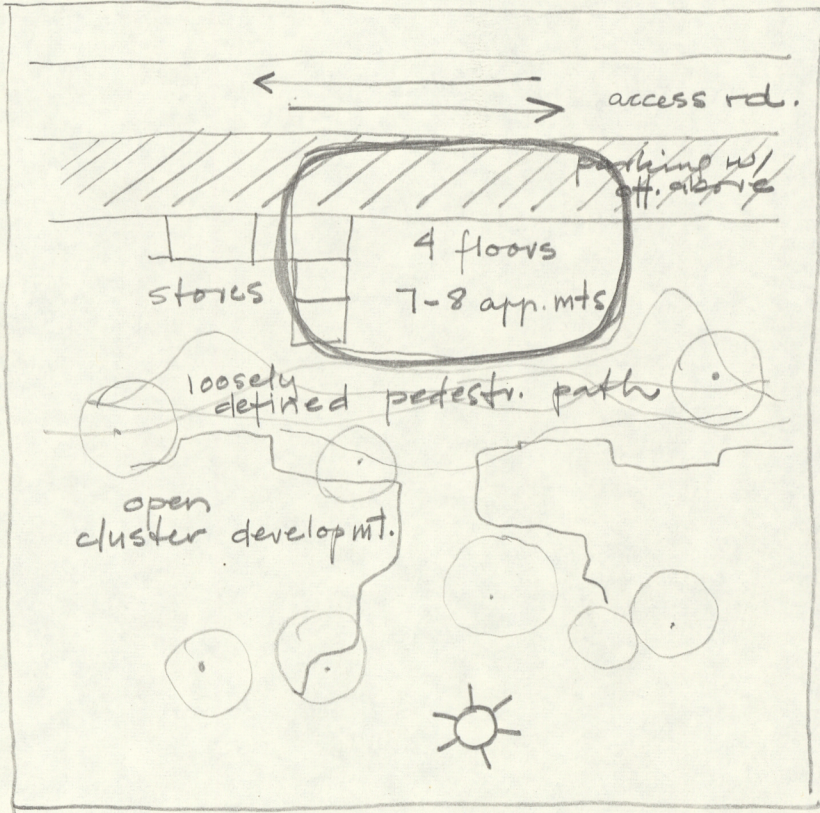 access rd.
parking w/
off. above
4 floors
7-8 app.mts
stores
loosely
defined pedestr. path
open
cluster developmt.